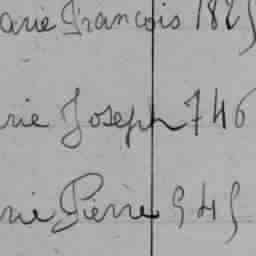 arie François 1825
rie Joseph 746
rie Pierre 545